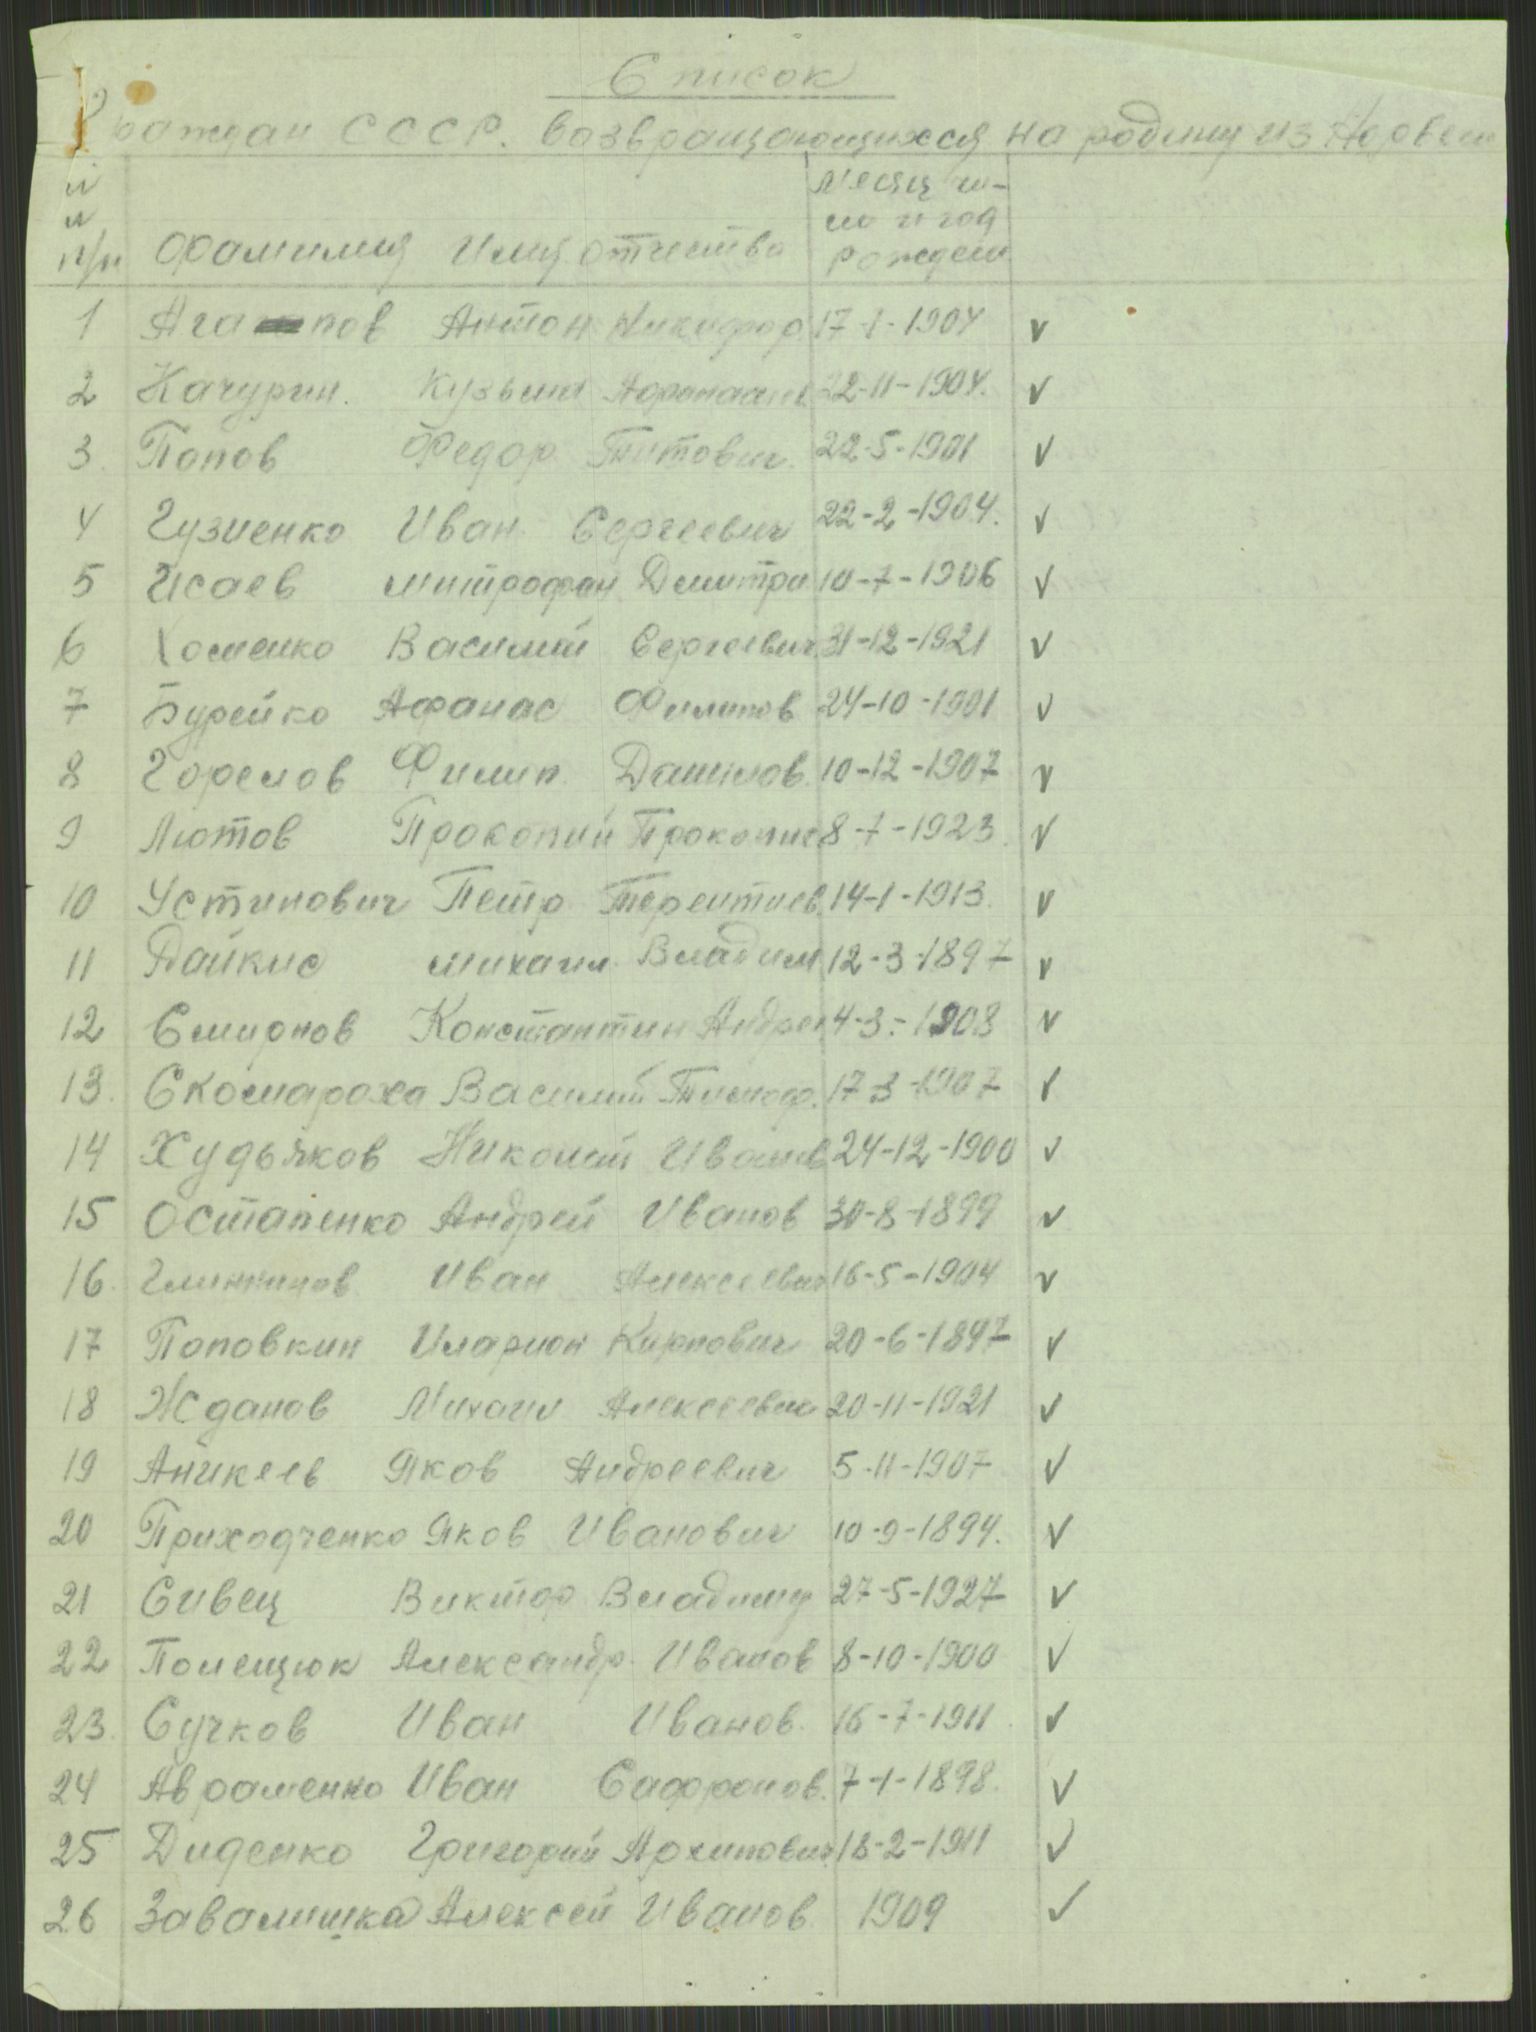 Список
Граждан СССР. возвращающихся на родину из Норвеги
№
№
п/п Фамилия Имя отчество месяц чи-
сло и год
рожден
1 Агапов Антон Никифор 17-1-1904 v
2 Качурин. Кузьма Афонасиев 22-11-1904. v
3. Попов Федор Титович. 22-5-1901 v
4 Гузиенко Иван Сергеевич 22-2-1904. v
5 Исаев митрофан Дмитри 10-7-1906 v
6 Хоменко Василий Сергеевич 31-12-1921 v
7 Бурейко Афанас Филипов 24-10-1901 v
8 Горелов Филип. Данилов. 10-12-1907 v
9 Лютов Прокопий Прокопие 8-7-1923. v
10 Устинович Петр Терентиев. 14-1-1913. v
11 Дайкис михаил Владим 12-3-1897 v
12 Смирнов Константин Андрее 4-3-1908 v
13. Скомароха Василий Тимоф. 17-3-1907 v
14 Худьяков Николай Иванов 24-12-1900 v
15 Остапенко Андрей Иванов 30-8-1899 v
16. Иван Алексеевич 16-5-1904 v
17 Поповкин Иларион Карпович 20-6-1897 v
18 Жданов Михаил Алексеевич 20-11-1921 v
19 Аникеев Яков Андреевич 5-11-1907 v
20 Приходченко Яков Иванович 10-9-1894. v
21 Сивец Виктор Владимир 27-5-1927 v
22 Полещюк Александр. Иванов 8-10-1900 v
23. Сучков Иван Иванов. 16-7-1911. v
24 Авраменко Иван Сафронов. 7-1-1898. v
25 Диденко Григорий Архипович 18-2-1911 v
26 Завалишка Алексей Иванов. 1909 v